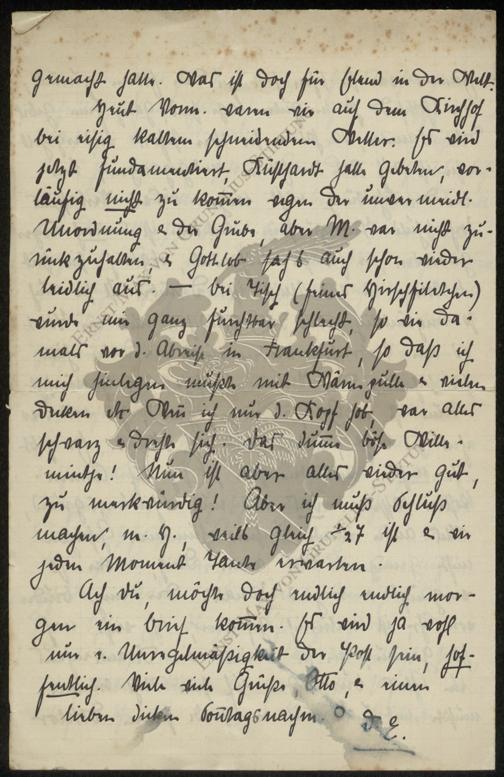 gemacht hatte. Was ist doch für Elend in der Welt.
Heut Vorm. waren wir auf dem Kirchhof
bei eisig kaltem schneidendem Wetter. Es wird
jetzt fundamentiert, Küsthardt hatte gebeten, vor-
läufig nicht zu kommen wegen der unvermeidl.
Unordnung & der Grube, aber M. war nicht zu-
rückzuhalten, & Gottlob sah's auch schon wieder
leidlich aus. — bei Tisch (feines Hirschfiletchen)
wurde mir ganz furchtbar schlecht, so wie da-
mals vor d. Abreise in Frankfurt, so daß ich
mich hinlegen mußte mit Wärmpulle & vielen
Decken etc. Wenn ich nur d. Kopf hob war alles
schwarz & drehte sich. Das dumme böse Wille-
mintje! Nun ist aber alles wieder gut,
zu merkwürdig! Aber ich muß Schluß
machen, m. H. weils gleich ½7 ist & wir
jeden Moment Tante erwarten.
Ach du, möchte doch endlich endlich mor-
gen ein brief kommen. Es wird ja wohl
nur e. Unregelmäßigkeit der Post sein, hof-
fentlich. Viele viele Grüße, Otto, & einen
lieben dicken Sonntagsnachm. D. E.
ERNST MAX VON GRUNELIUS-STIFTUNG
ERNST MAX VON GRUNELIUS-STIFTUNG